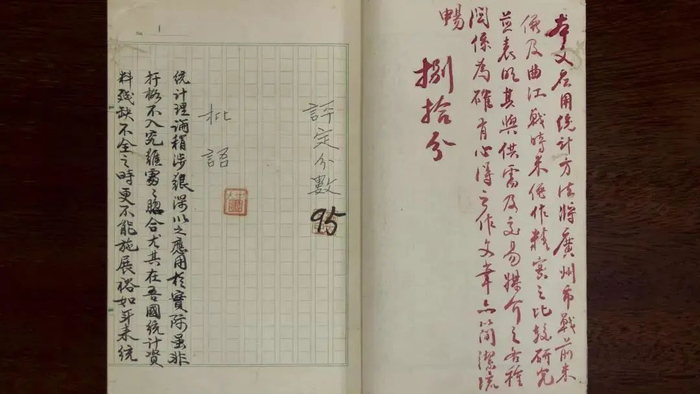 本文应用统计方法將廣州市戰前米
價及曲江戰時米價作精密之比較研究
並表明其與供需及交易媒介之各種
関係為確有心得之作文章亦简潔流
暢
捌拾分
評定分數
95
批語
统计理論稍涉艱深以之應用於實際虽非
扞格不入究難合尤其在吾國統计資
料残缺不全之時更不能施展裕如年来統